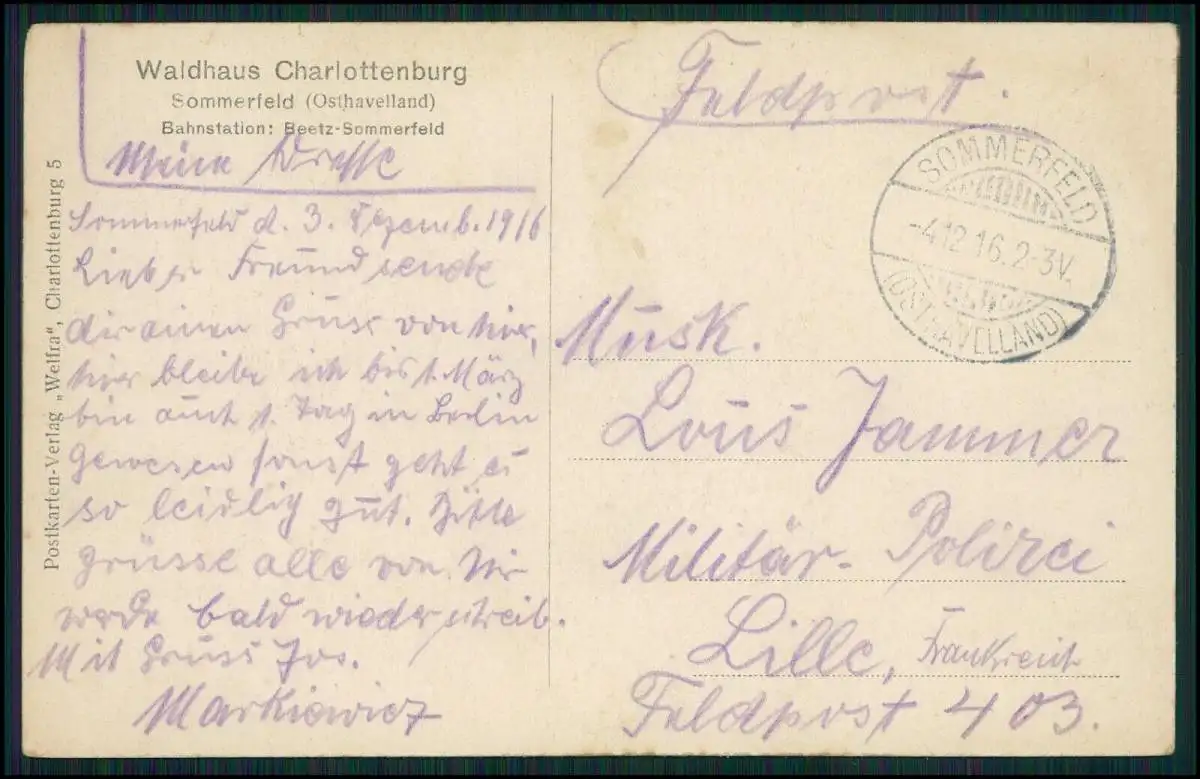 Waldhaus Charlottenburg
Sommerfeld (Osthavelland)
Bahnstation: Beetz-Sommerfeld
Meine Adresse
Sommerfeld d. 3. Dezemb. 1916
Lieber Freund sende
dir einen Gruss von hier,
hier bleibe ich bis 1. März
bin auch 1. Tag in Berlin
gewesen sonst geht es
so leidlich gut. Bitte
grüsse alle von Mir
werde bald wieder schreib.
Mit Gruss Jos.
Markiewicz
Postkarten-Verlag „Welfra", Charlottenburg 5
Feldpost.
SOMMERFELD
-4.12.16.2-3V.
(OSTHAVELLAND)
Musk.
Louis Jammer
Militär-Polizei
Lille, Frankreich
Feldpost 403.